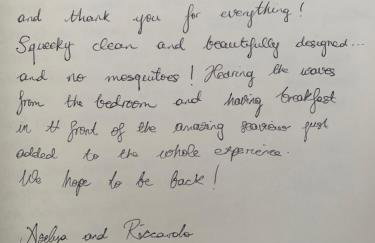 and thank you for everything!
Squeeky clean and beautifully designed...
and no mosquitoes! Hearing the waves
from the bedroom and having breakfast
in front of the amazing just
added to the whole experience.
We hope to be back!
and Riccardo